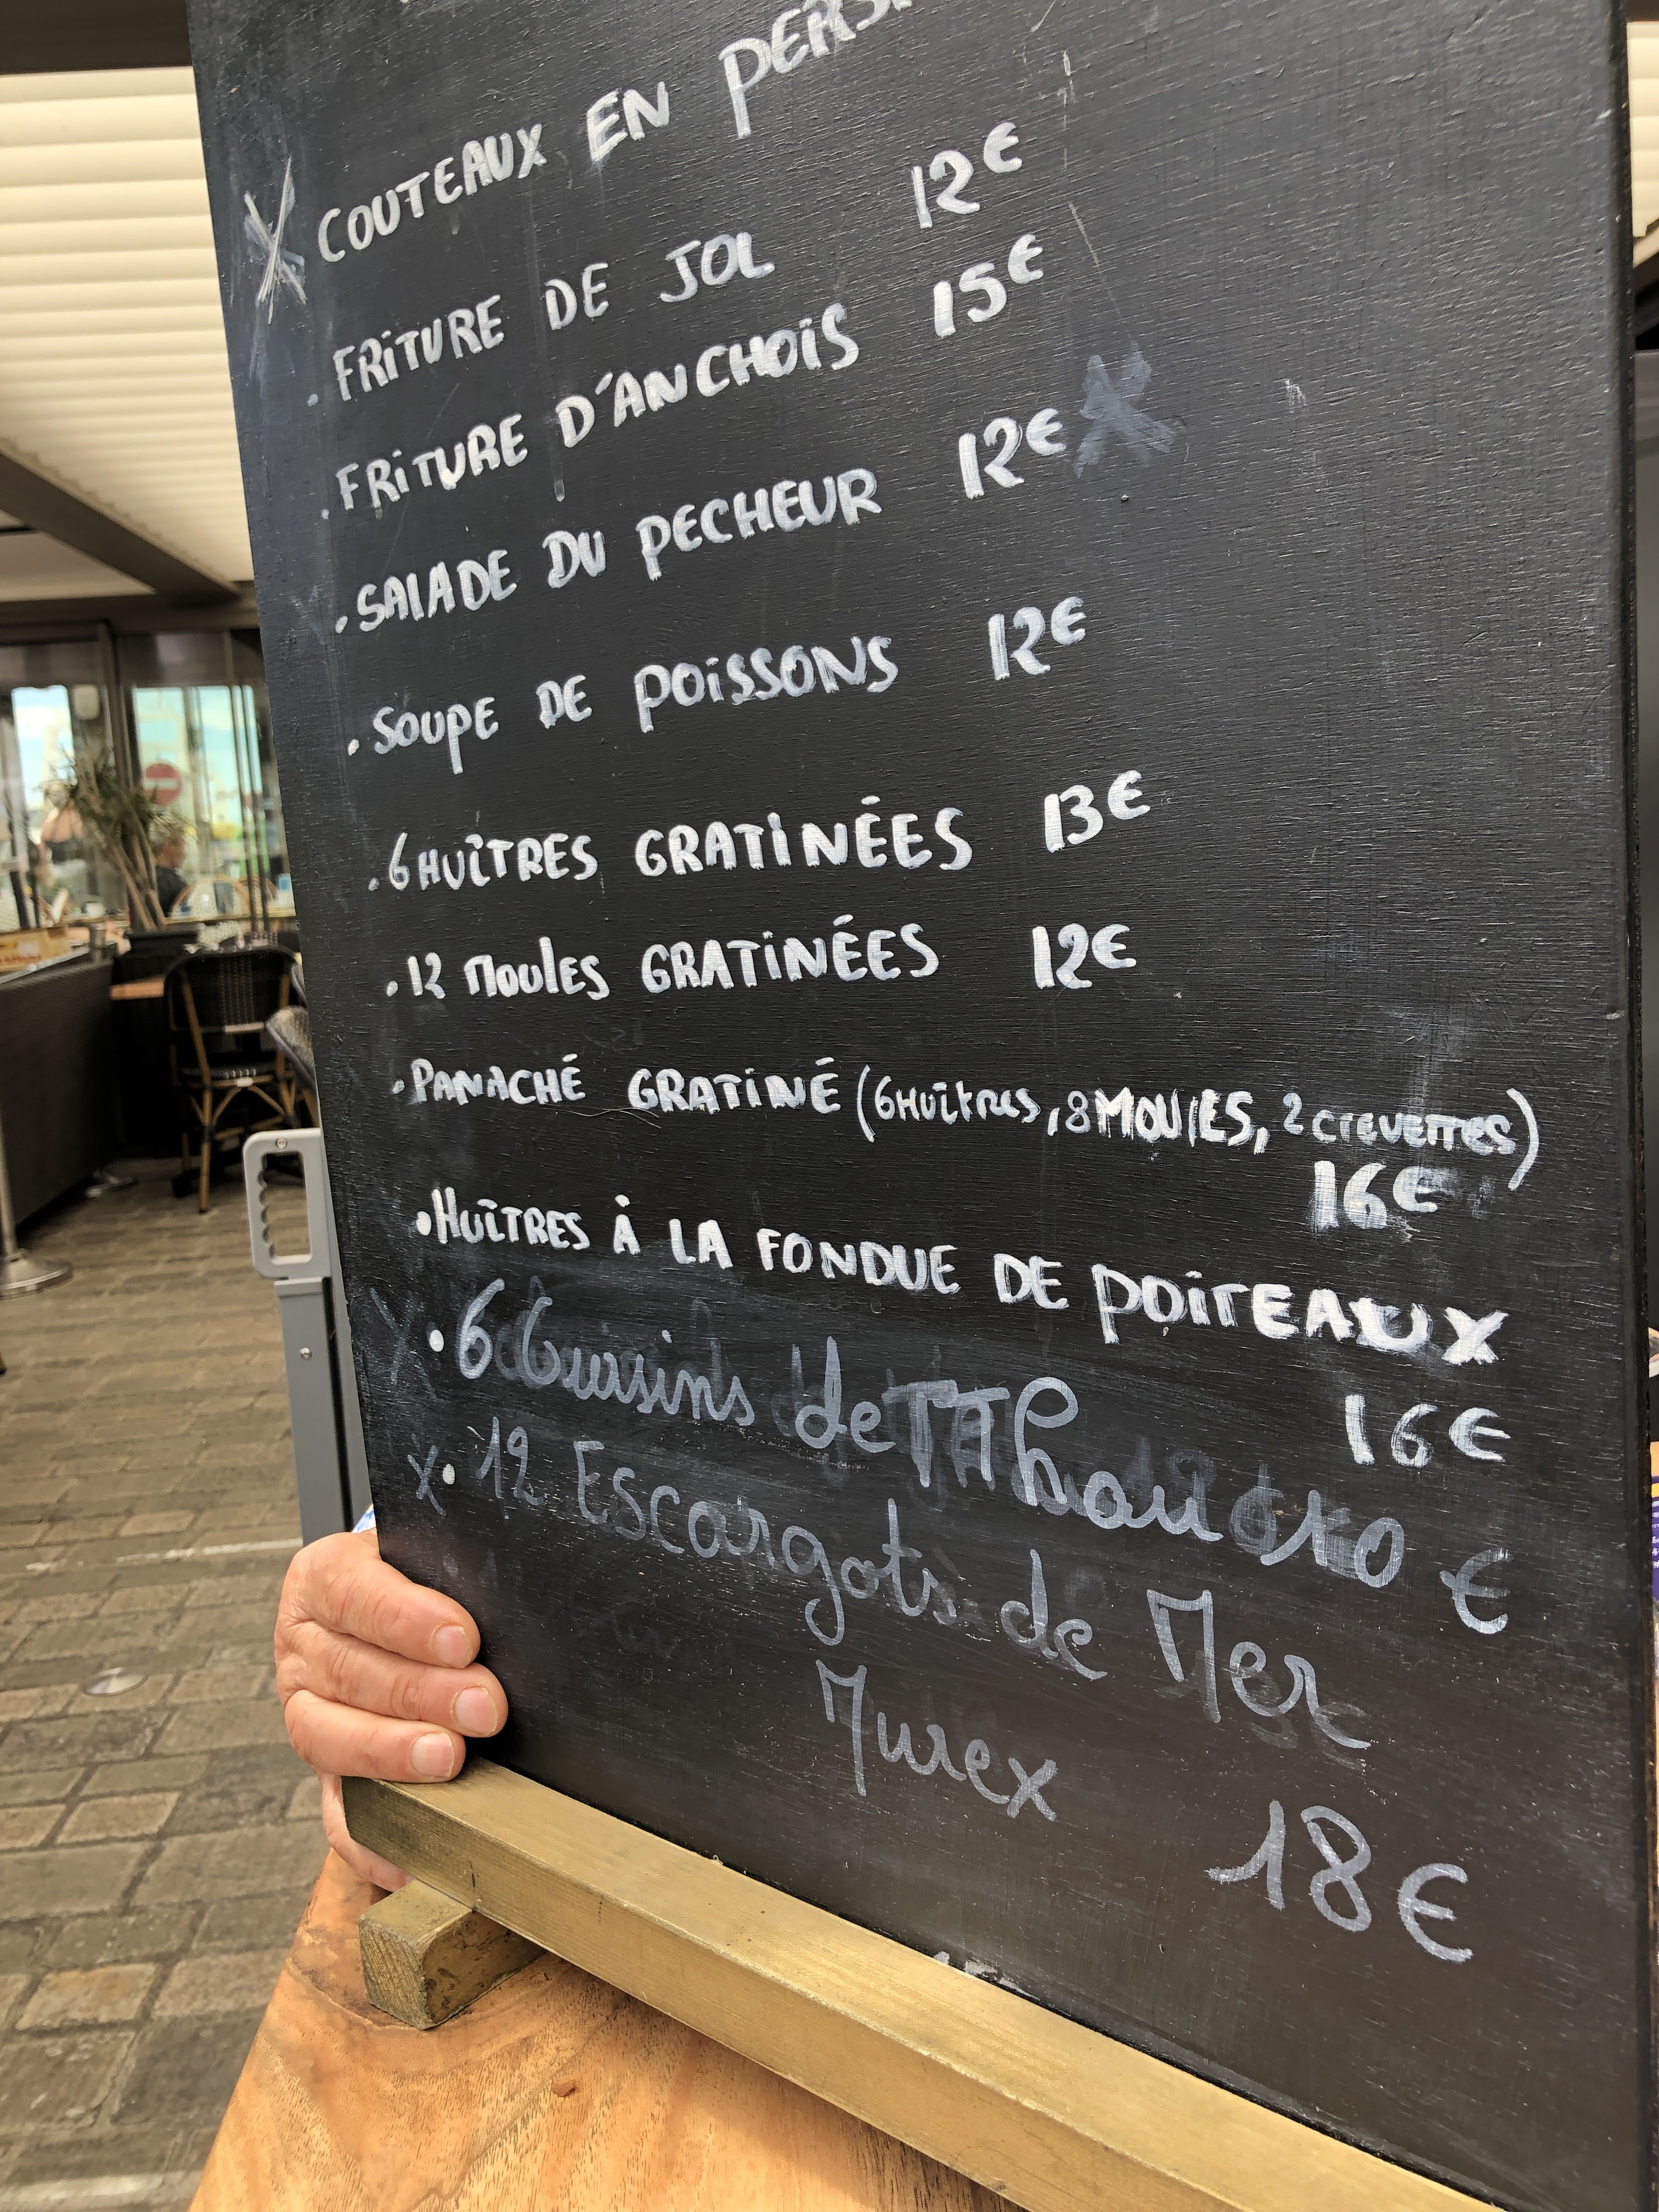 X COUTEAUX EN PERS
. FRITURE DE JOL 12€
. FRITURE D'ANCHOIS 15€
. SALADE DU PECHEUR 12€ X
. SOUPE DE POISSONS 12€
. 6 HUÎTRES GRATINÉES 13€
. 12 MOULES GRATINÉES 12€
. PANACHÉ GRATINÉ (6 HUÎTRES, 8 MOULES, 2 CREVETTES)
16€
. HUÎTRES À LA FONDUE DE POITEAUX
16€
X . 6 de Thau €
X . 12 Escargots de Mer
Murex 18€